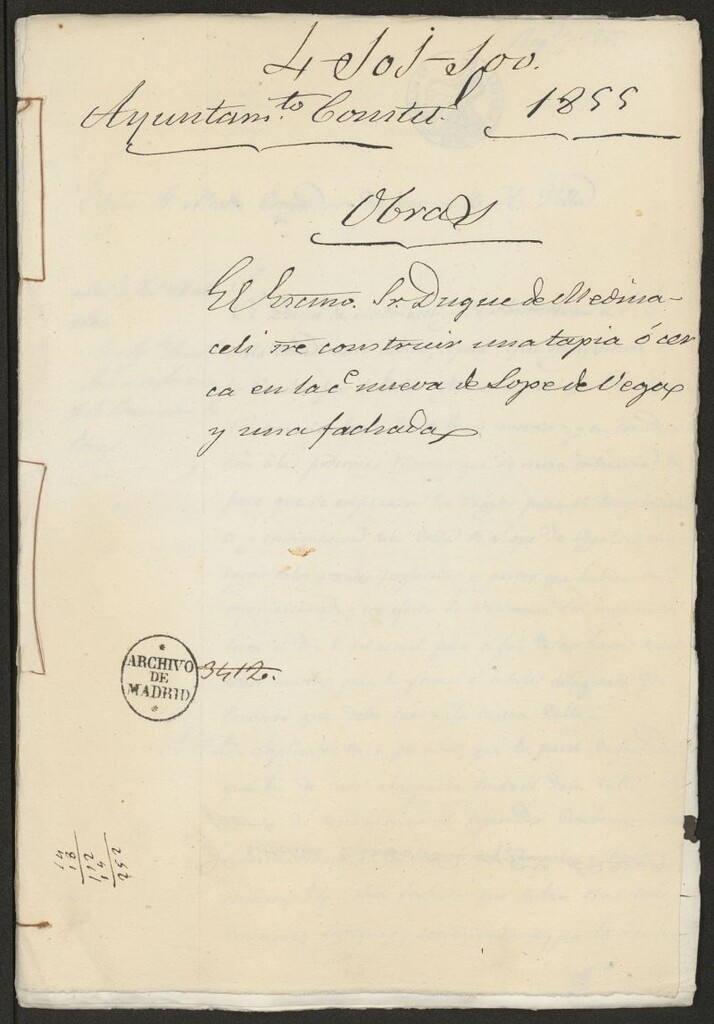 4-505-500.
Ayuntam.to Constit.l 1855
Obras
El Excmo. Sr. Duque de Medina-
celi sre construir una tapia ó cer
ca en la c.e nueva de Lope de Vega
y una fachada
ARCHIVO
DE
MADRID
3412.
14
18
112
14
252